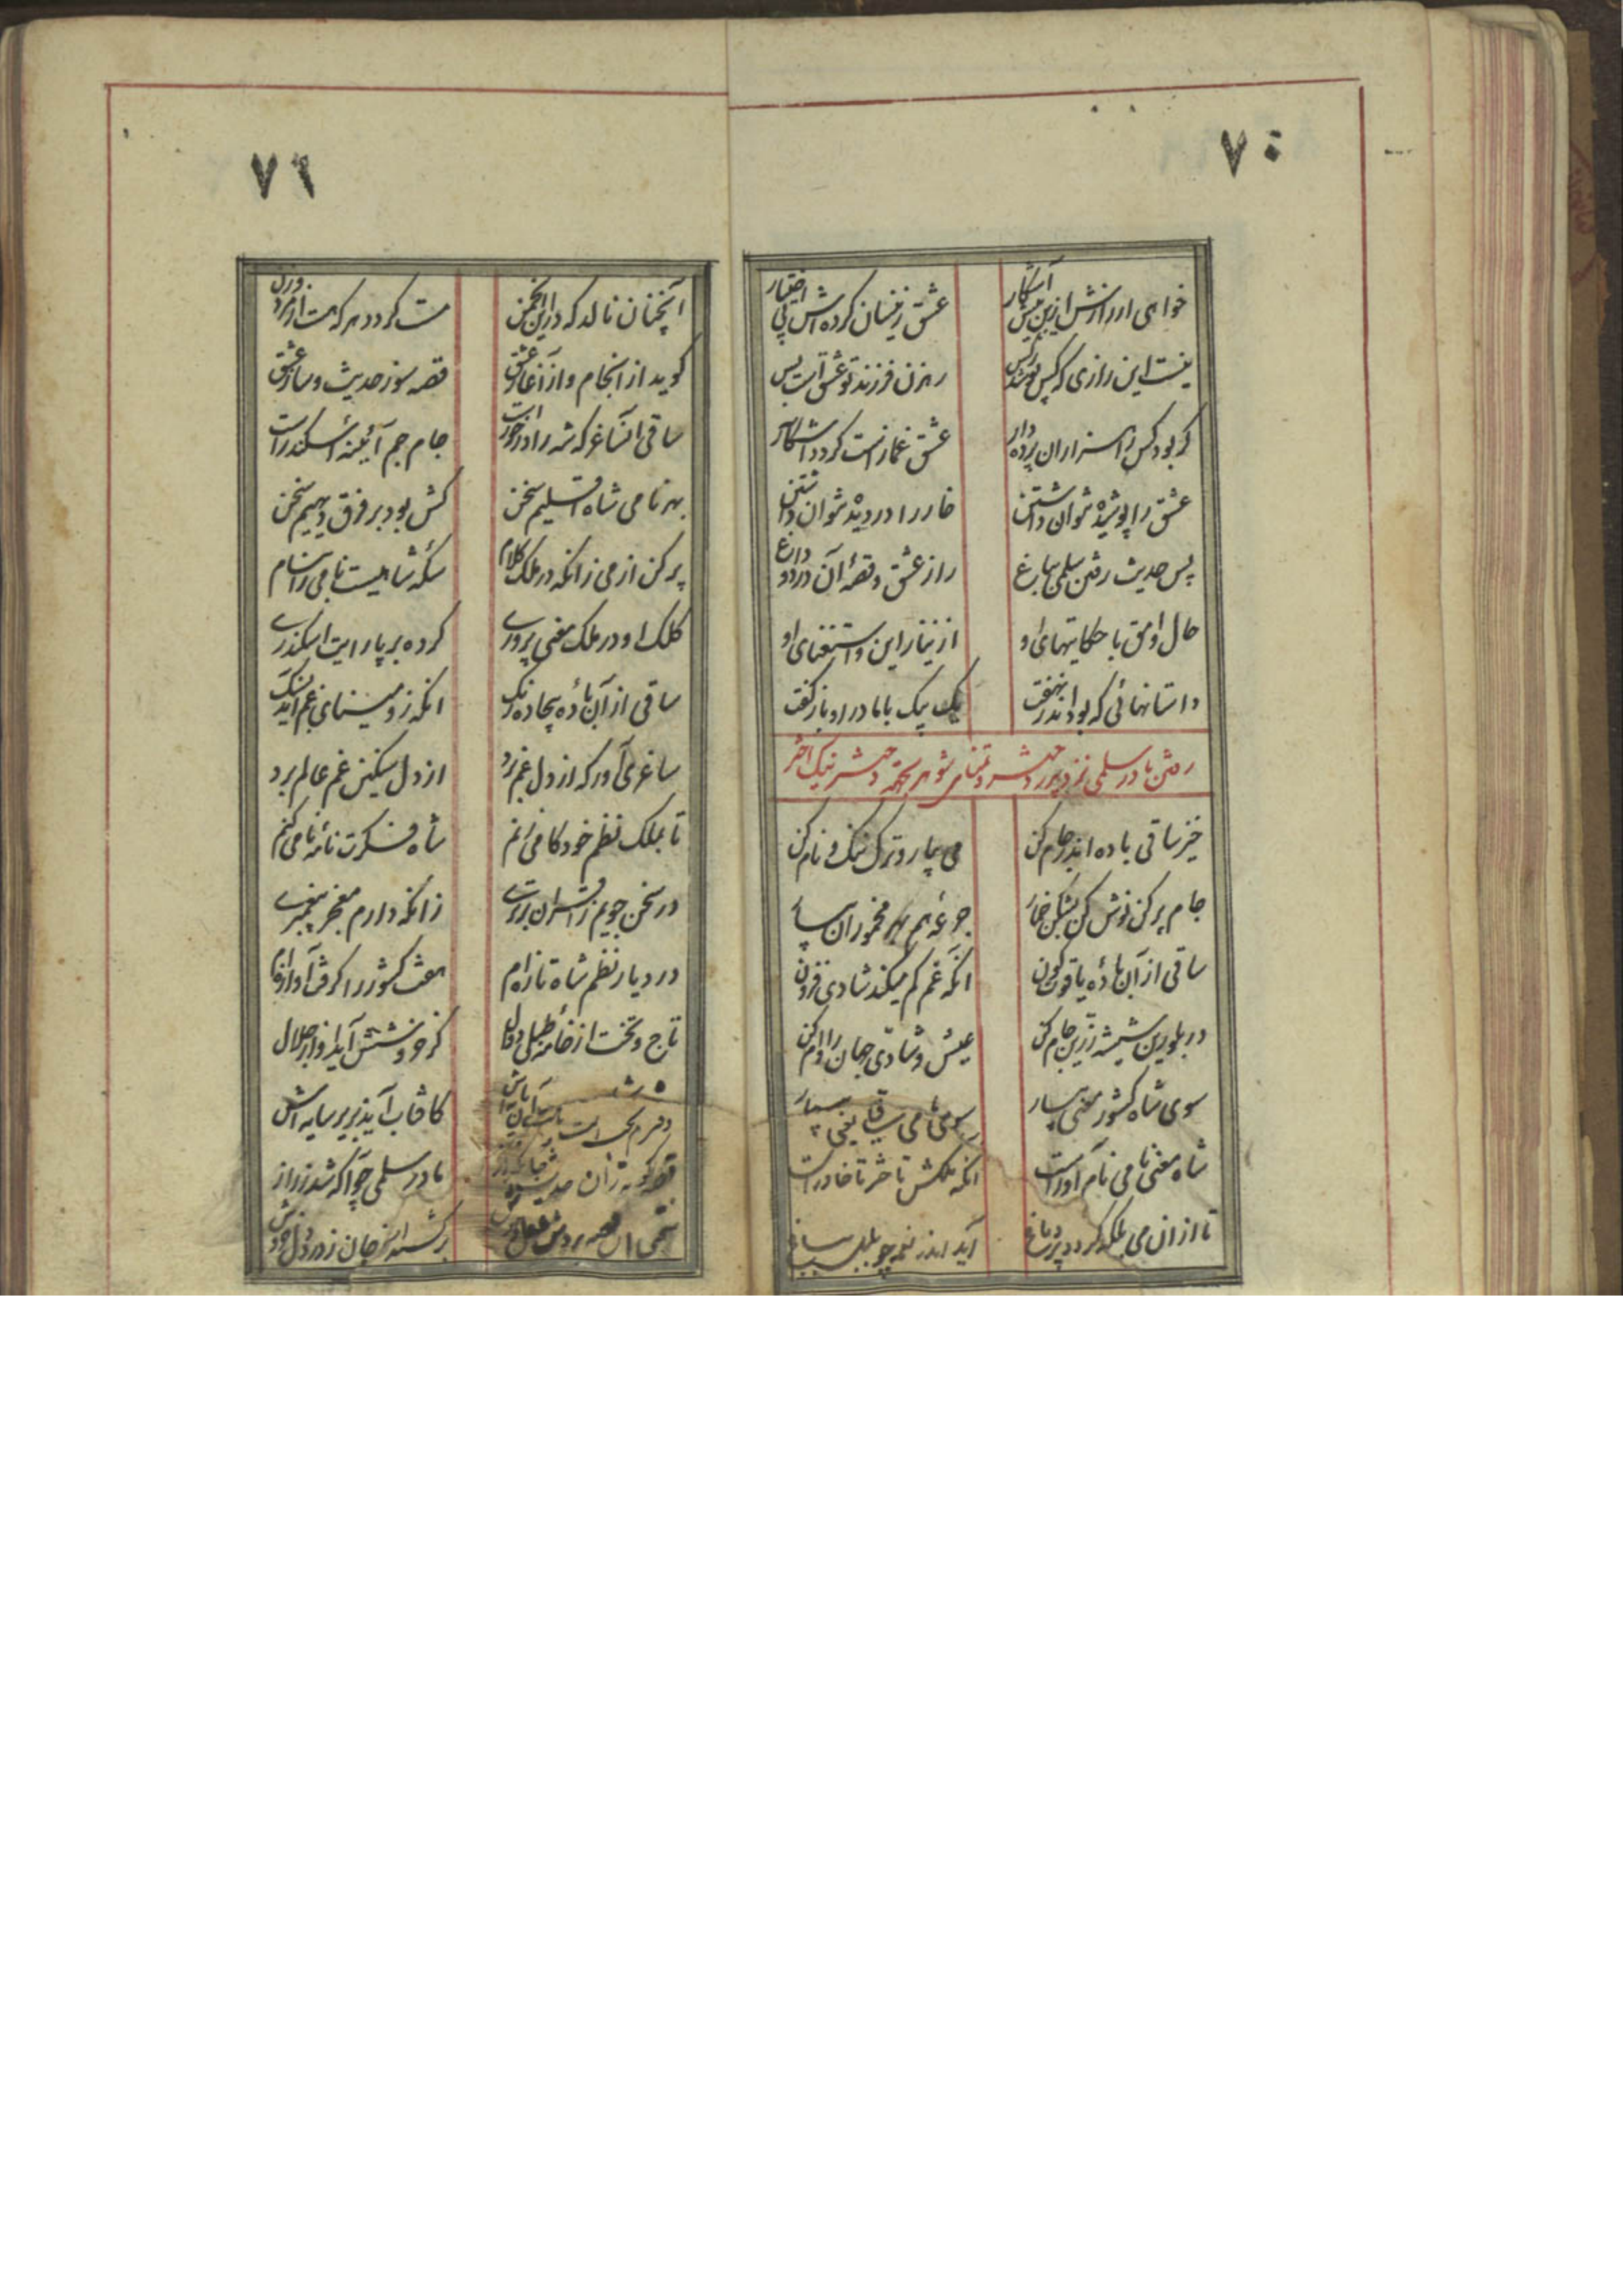 ۷۵
خواهی ار رازش ازین پس آشکار
عشق زینسان کرده اش بی اختیار
نیست این رازی که کس پوشد ز کس
رهزن فرزند تو عشق است و بس
گر بود کس را هزاران پرده دار
عشق غماز است گردد آشکار
عشق را پوشیده نتوان داشتن
خار را در دیده نتوان داشتن
پس حدیث رفتن سلمی بباغ
راز عشق و قصهٔ آن درد و داغ
حال وامق با حکایتهای او
از نیاز این و استغنای او
داستانهائی که بود اندر نهفت
یک بیک با مادر او باز گفت
رفتن مادر سلمی نزد پدر دختر و تمنای شوهر بجهة دختر نیک اختر
خیز ساقی باده اندر جام کن
می بیار و ترک ننگ و نام کن
جام پر کن نوش کن بشکن خمار
جرعهٔ هم بهر مخموران بیار
ساقی از آن بادهٔ یاقوت گون
آنکه غم کم میکند شادی فزون
در بلورین شیشه زرین جام کن
عیش و شادی جهان را رام کن
سوی شاه کشور معنی بیار
سوی نامی ساقیا یعنی بیار
شاه معنی نامی نام آور است
آنکه ملکش باختر تا خاور است
تا از ان می بلکه گردد تر دماغ
آید اندر نغمه چو بلبل بباغ
۷۶
آنچنان نالد که در این انجمن
مست گردد هر که هست از مرد و زن
گوید از انجام و از آغاز عشق
قصه سوز حدیث و ساز عشق
ساقی آن ساغر که شه را در خور است
جام جم آئینهٔ اسکندر است
بهر نامی شاه اقلیم سخن
کش بود بر فرق دیهیم سخن
پر کن از می زانکه در ملک کلام
سکه شاهیست نامی را بنام
کلک او در ملک معنی پروری
کرده بر پا رایت اسکندری
ساقی از آن بادهٔ بیجاده رنگ
آنکه زو مینای غم آید بسنگ
ساغری آور که از دل غم برد
از دل مسکین غم عالم برد
تا بملک نظم خودکامی کنم
شاه فکرت نامه نامی کنم
در سخن جویم ز اقران برتری
زانکه دارم معجز پیغمبری
در دیار نظم شاه تازه ام
هفت کشور را گرفت آوازه ام
تاج و تخت از خامه طبل و
کز خروشش آید آواز جلال
دفترم
کافتاب آید بزیر سایه اش
قصه کوته زان حدیث
مادر سلمی چو آگه شد ز راز
سختی این قصه بردش
گشت سیر از جان ز درد دل خودش